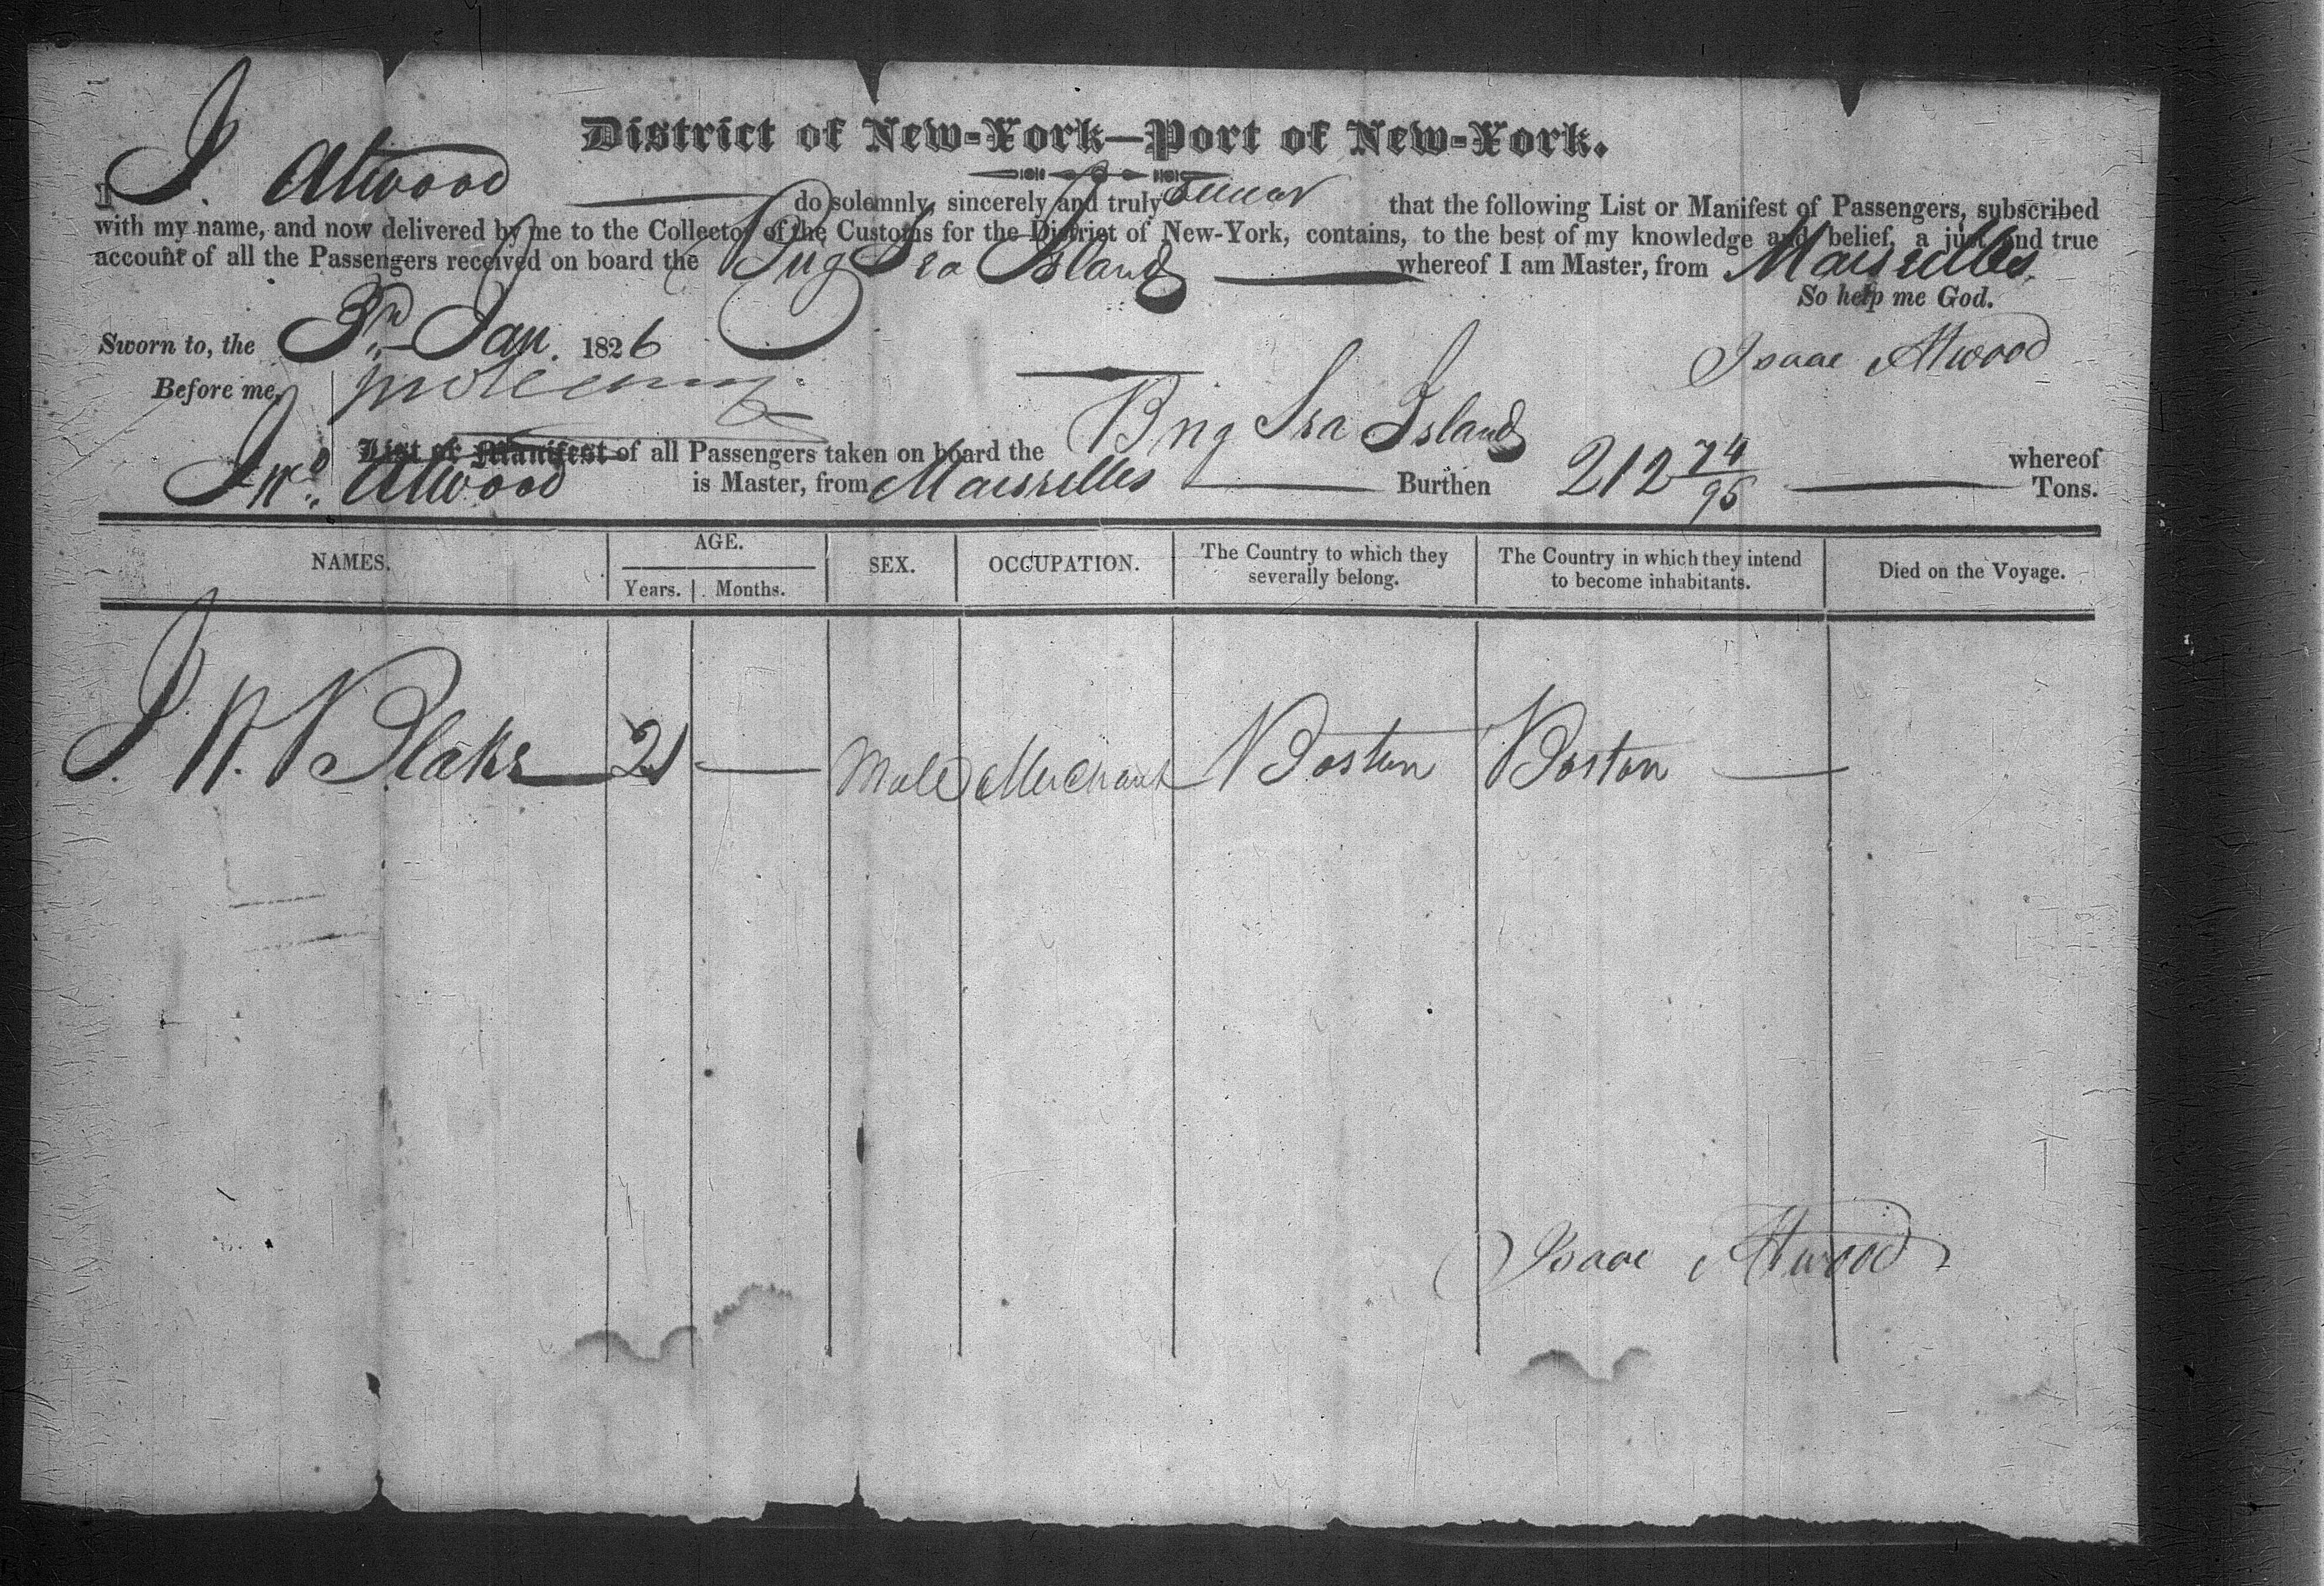 District of New-York—Port of New-York.
I J. Atwood do solemnly, sincerely and truly swear that the following List or Manifest of Passengers, subscribed
with my name, and now delivered by me to the Collector of the Customs for the District of New-York, contains, to the best of my knowledge and belief, a just and true
account of all the Passengers received on board the Brig Sea Island whereof I am Master, from Marseilles
So help me God.
Sworn to, the 3rd Jan. 1826
Isaac Atwood
Before me,
List or Manifest of all Passengers taken on board the Brig Sea Island whereof
Jno. Atwood is Master, from Marseilles Burthen 212 74/95 Tons.
NAMES. AGE. SEX. OCCUPATION. The Country to which they severally belong. The Country in which they intend to become inhabitants. Died on the Voyage.
Years. Months.
J. N. Blake 21 — Male Merchant Boston Boston —
Isaac Atwood